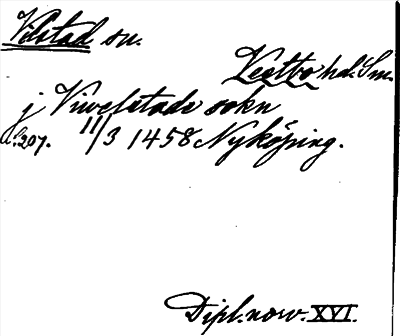 Vilstad sn.
Vestbo hd. Sm.
j Viuelstade sokn
S.207. 11/3 1458 Nyköping.
Dipl. norv. XVI.